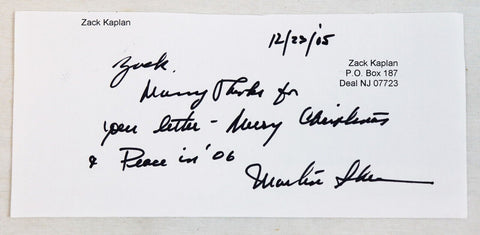 Zack Kaplan
12/23/05
Zack Kaplan
P.O. Box 187
Deal NJ 07723
Zack.
Many Thanks for
your letter - Merry Christmas
& Peace in '06
Martin